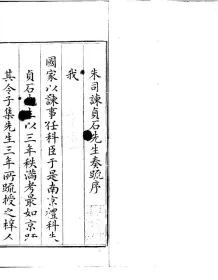 朱司諫貞石先生奏疏序
我
國家以諫事任科臣于是南京禮科朱
貞石先生以三年秩滿考最如京師
其令子集先生三年所疏授之梓人